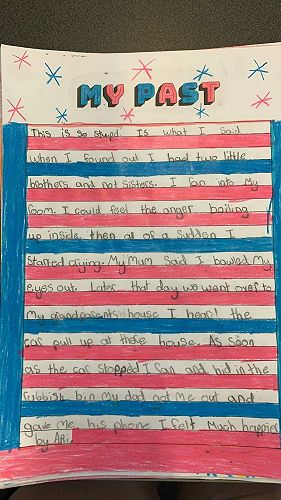 MY PAST
This is so stupid Is what I said
when I found out I had two little
brothers and not sisters. I ran into My
room. I could feel the anger boiling
up inside. then all of a sudden I
Started crying. My Mum Said I bawled My
eyes out. Later that day we went over to
My grandparents house I heard the
car pull up at there house. As soon
as the car stopped I ran and hid in the
rubbish bin My dad got me out and
gave me his phone I felt Much happier
by Ari